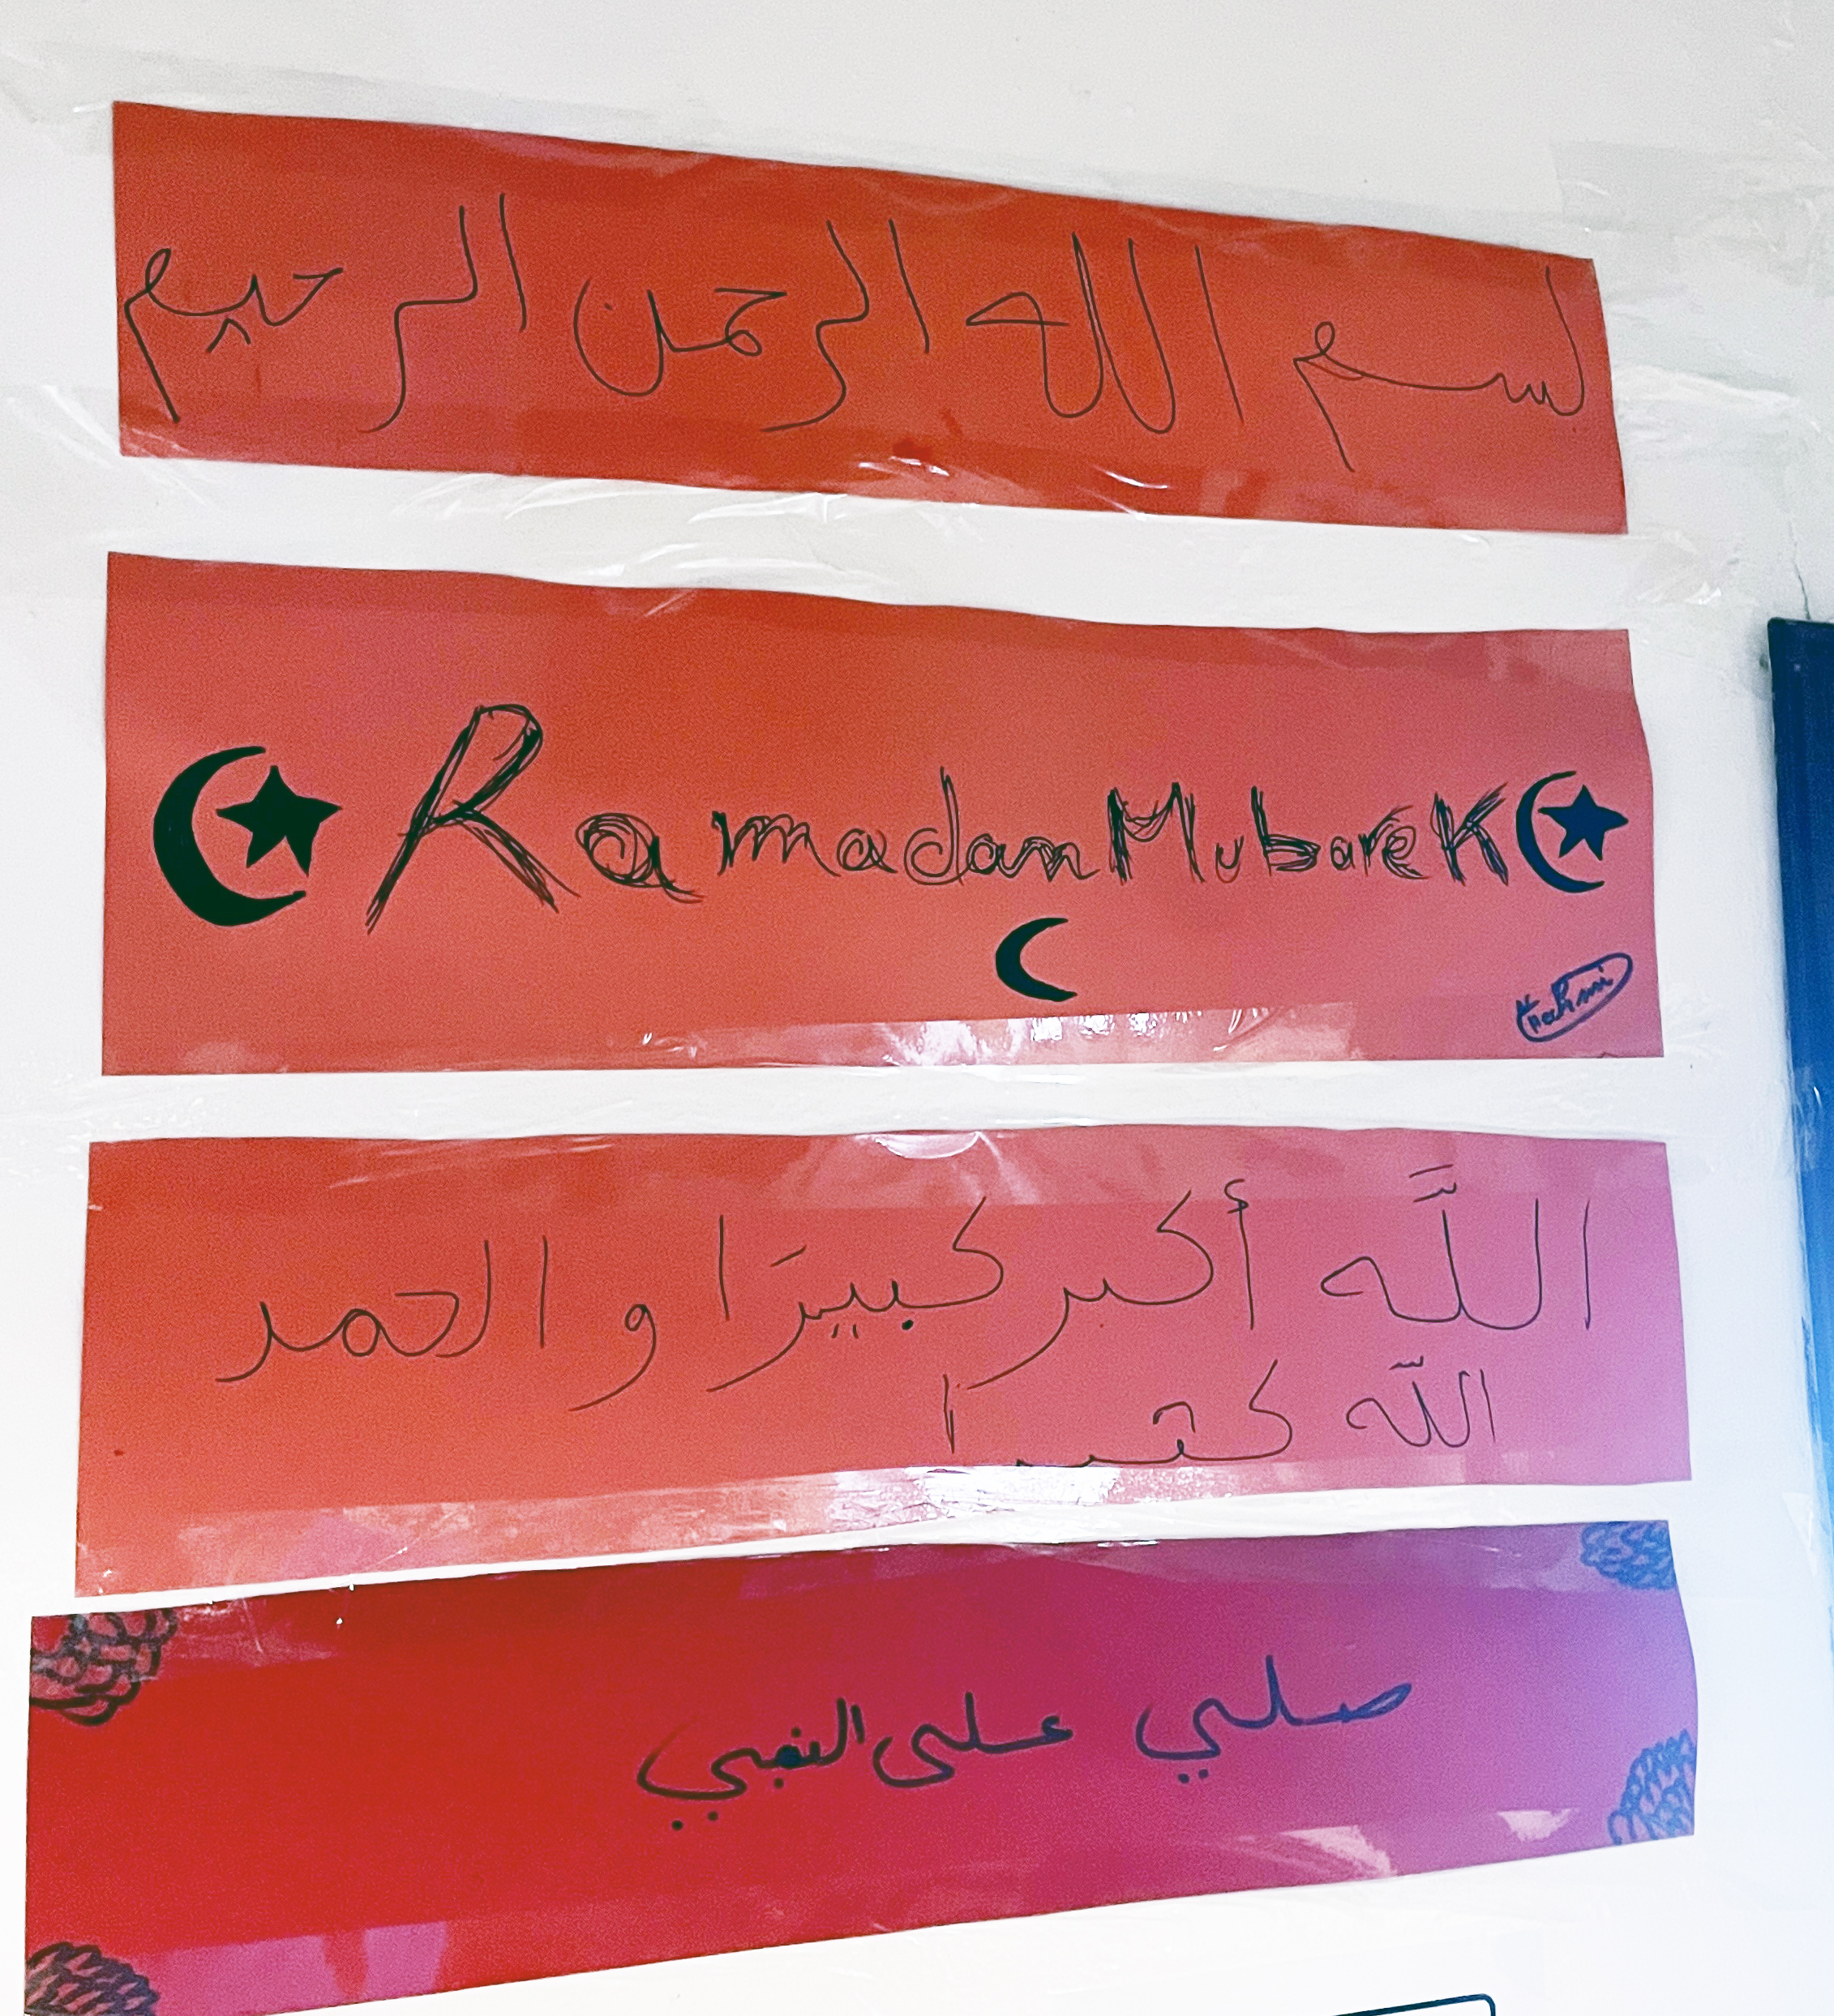 بسم الله الرحمن الرحيم
Ramadan Mubarek
اللَّه أكبر كبيرَا و الحمد
اللّه كثيرا
صلي على النبي